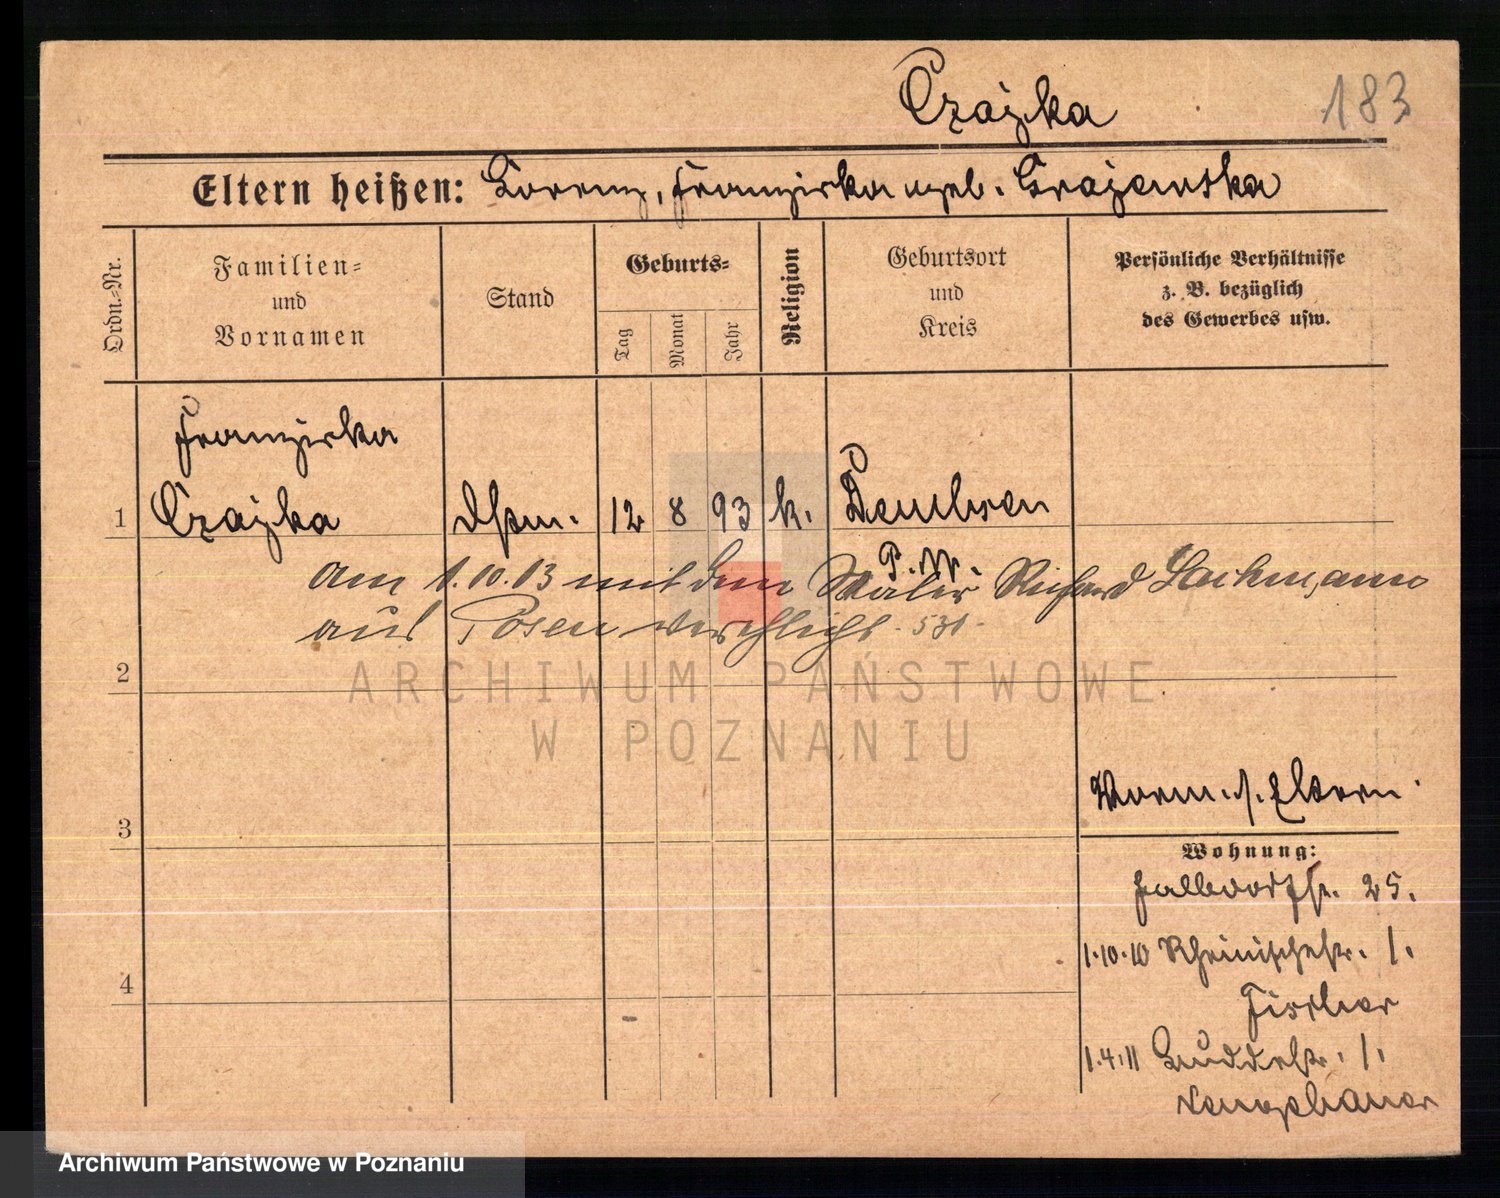 Czajka
183
Eltern heißen: Lorenz, Franziska geb. Grajewska
Ordn.-Nr.
Familien-
und
Vornamen
Stand
Geburts-
Tag
Monat
Jahr
Religion
Geburtsort
und
Kreis
Persönliche Verhältnisse
z. B. bezüglich
des Gewerbes usw.
Franziska
1 Czajka 12 8 93 k. Dembsen
P.W.
am 1.10.13 mit dem Maler Richard Lachmann
aus Posen verehlicht - 531 -
2
ARCHIWUM PAŃSTWOWE
W POZNANIU
3
Eltern
Wohnung:
25.
4
1.10.10 Rheinischestr. 1.
Fischer
1.4.11 Buddestr. 1.
Archiwum Państwowe w Poznaniu